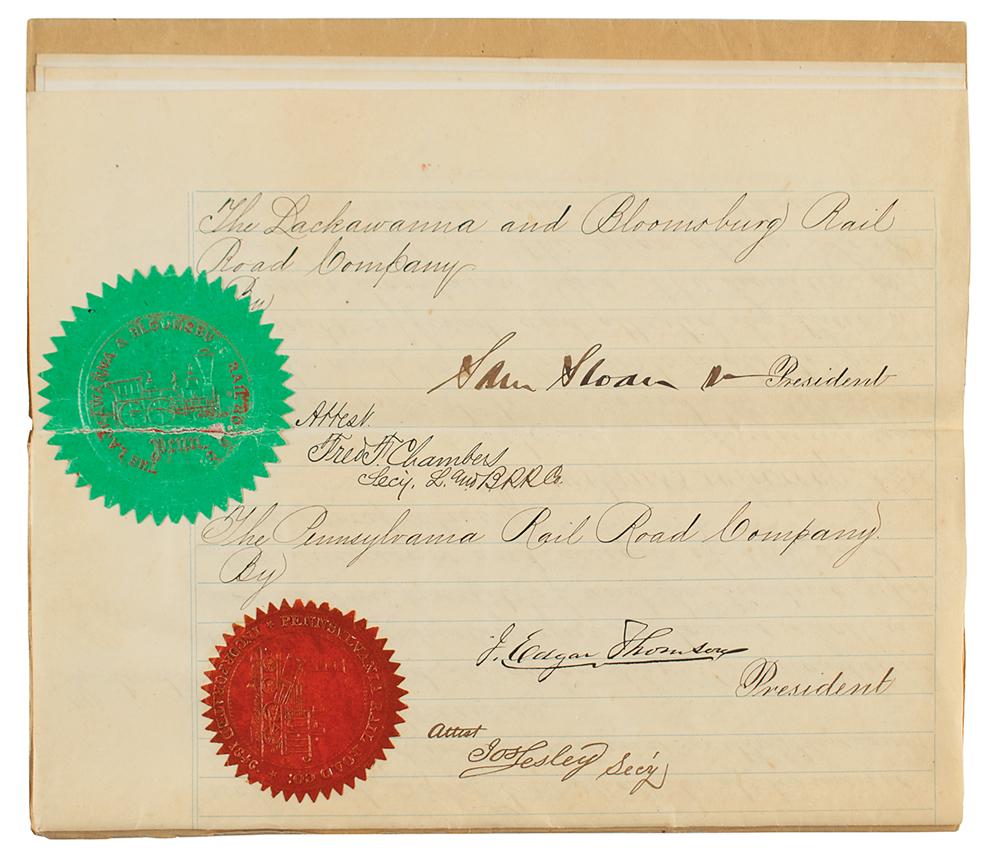 The Lackawanna and Bloomsburg Rail
Road Company
By
Sam Sloan
President
Attest.
Fred F. Chambers
Secy. L. and B R R Co.
THE LACKAWANNA & BLOOMSBURG RAIL ROAD
The Pennsylvania Rail Road Company.
By
PENNSYLVANIA RAIL ROAD CO.
J. Edgar Thomson
President
Attest
Jos Lesley Secy